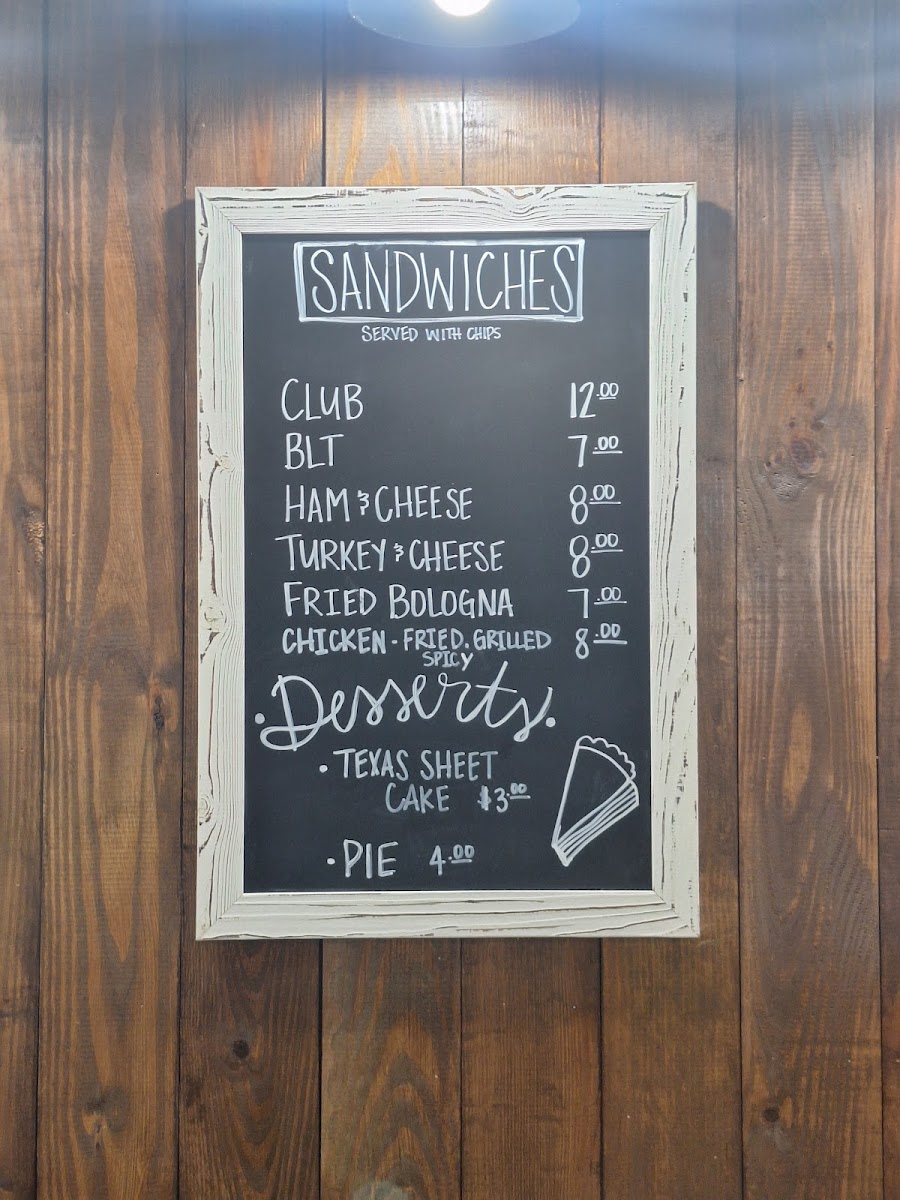 SANDWICHES
SERVED WITH CHIPS
CLUB 12.00
BLT 7.00
HAM & CHEESE 8.00
TURKEY & CHEESE 8.00
FRIED BOLOGNA 7.00
CHICKEN - FRIED. GRILLED 8.00
SPICY
• Desserts •
• TEXAS SHEET
CAKE $3.00
• PIE 4.00